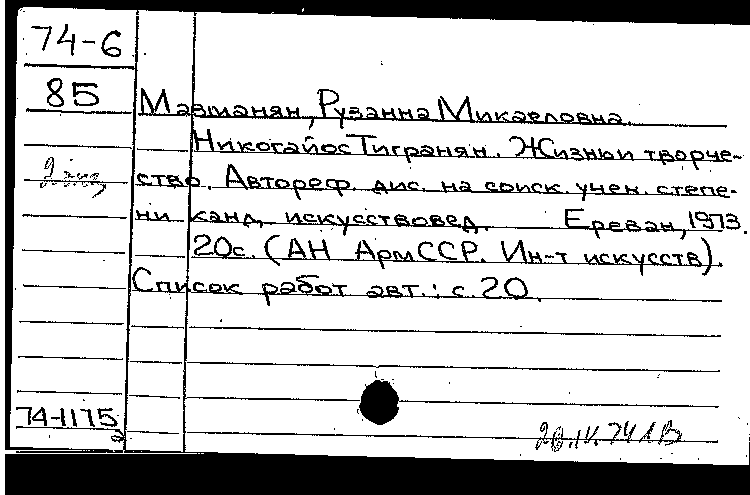 74-6
85
Мазманян, Рузанна Микаеловна.
Никогайос Тигранян. Жизнь и творче-
ство. Автореф. дис. на соиск. учен. степе-
ни канд. искусствовед. Ереван, 1973.
20с. (АН АрмССР. Ин-т искусств).
Список работ авт.: с. 20.
74-1175
20.IV.74